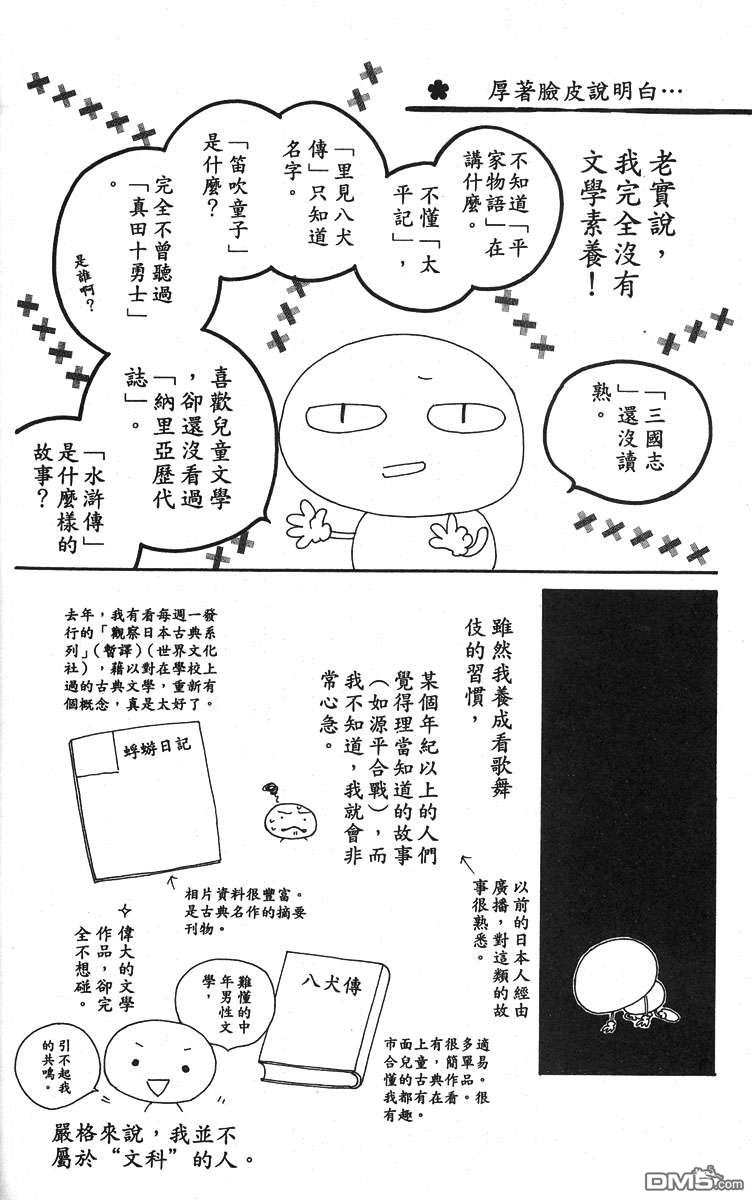 厚著臉皮說明白…
老實說，
我完全沒有
文學素養！
「三國志
」還沒讀
熟。
不知道「平
家物語」在
講什麼。
不懂「太
平記」，
「里見八犬
傳」只知道
名字。
「笛吹童子」
是什麼？
完全不曾聽過
「真田十勇士」
。
是誰啊？
喜歡兒童文學
，卻還沒看過
「納里亞歷代
誌」。
「水滸傳」
是什麼樣的
故事？
雖然我養成看歌舞
伎的習慣，
某個年紀以上的人們
覺得理當知道的故事
（如源平合戰），而
我不知道，我就會非
常心急。
以前的日本人經由
廣播，對這類的故
事很熟悉。
去年，我有看每週一發
行的「觀察日本古典系
列」（暫譯）（世界文化
社），藉以對在學校上
過的古典文學，重新有
個概念，真是太好了。
蜉蝣日記
相片資料很豐富。
是古典名作的摘要
刊物。
八犬傳
市面上有很多適
合兒童，簡單易
懂的古典作品。
我都有在看。很
有趣。
偉大的文學
作品，卻完
全不想碰。
難懂的中
年男性文
學，
引不起我
的共鳴。
嚴格來說，我並不
屬於“文科”的人。
DM5.com